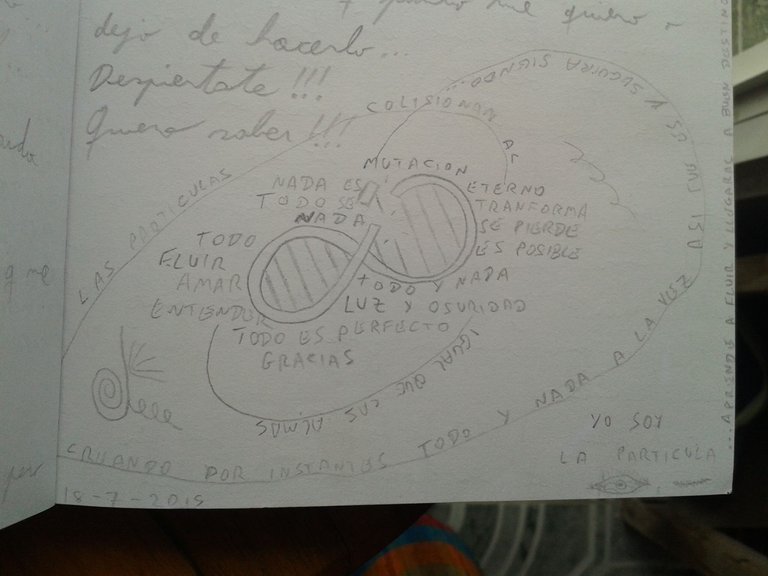 y quiero
dejo de hacerlo...
Despiertate!!!
Quiero saber!!!
LAS PARTICULAS
COLISIONAN
AL
IGUAL QUE LAS ALMAS
CREANDO POR INSTANTES TODO Y NADA A LA VEZ
ASI FUE ES Y SEGUIRA SIENDO...
...APRENDE A FLUIR Y LLEGARAS A BUEN DESTINO
MUTACION
NADA ES
TODO SE
NADA
TODO
FLUIR
AMAR
ENTENDER
TODO ES PERFECTO
GRACIAS
ETERNO
TRANFORMA
SE PIERDE
ES POSIBLE
TODO Y NADA
LUZ Y OSURIDAD
YO SOY
LA PARTICULA
18-7-2015